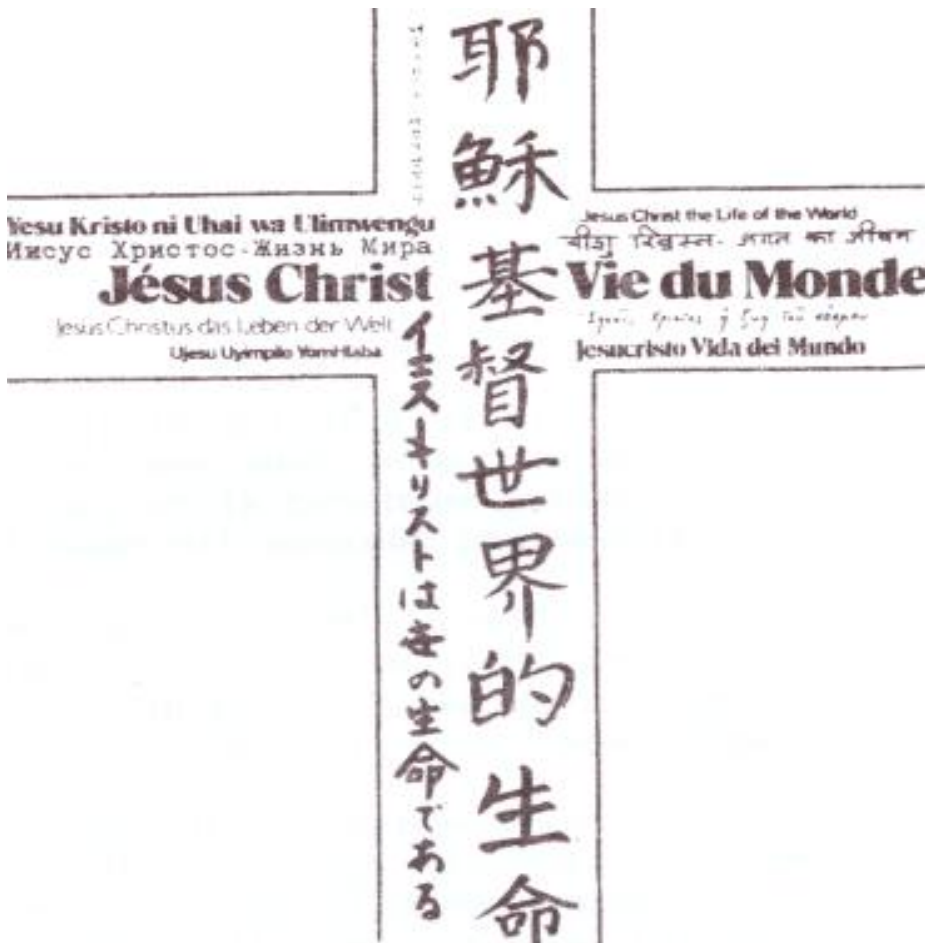 耶穌基督世界的生命
イエスキリストは世の生命である
Yesu Kristo ni Uhai wa Ulimwengu
Иисус Христос-Жизнь Мира
Jésus Christ
Vie du Monde
Jesus Christus das Leben der Welt
Ujesu Uyimpilo YomHlaba
Jesus Christ the Life of the World
यीशु ख्रिस्त- जगत का जीवन
Jesucristo Vida del Mundo